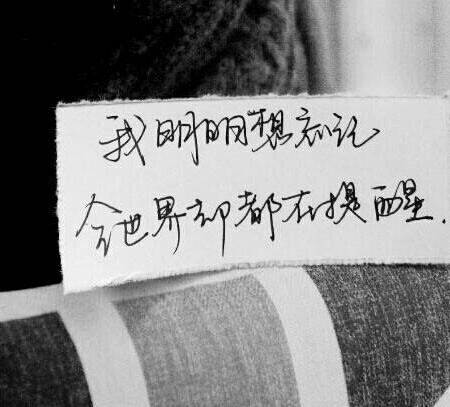 我明明想忘记
全世界却都在提醒.